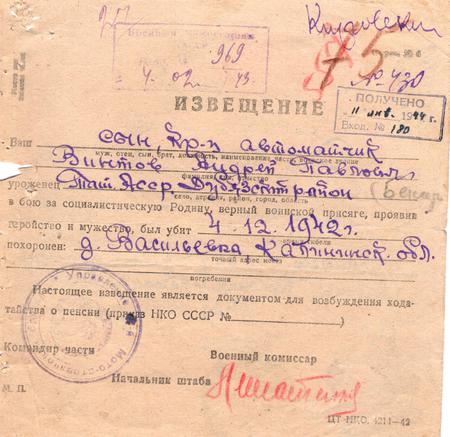 Кировский
75
№ 430
969
4. 02. 43.
ПОЛУЧЕНО
11 янв. 1944 г.
Вход. № 180
ИЗВЕЩЕНИЕ
Ваш сын, кр-ц автоматчик
муж, отец, сын, брат, должность, наименование части, воинское звание
Винтов Андрей Павлович
уроженец Тат. Асср Дубязск. район
село, деревня, район, город, область
в бою за социалистическую Родину, верный воинской присяге, проявив
геройство и мужество, был убит 4.12.1942 г.
похоронен: д. Васильевка Калининск. обл.
точный адрес места
погребения
Настоящее извещение является документом для возбуждения хода-
тайства о пенсии (приказ НКО СССР №
Командир части
Военный комиссар
Начальник штаба
М. П.
ЦТ НКО. 4211—42